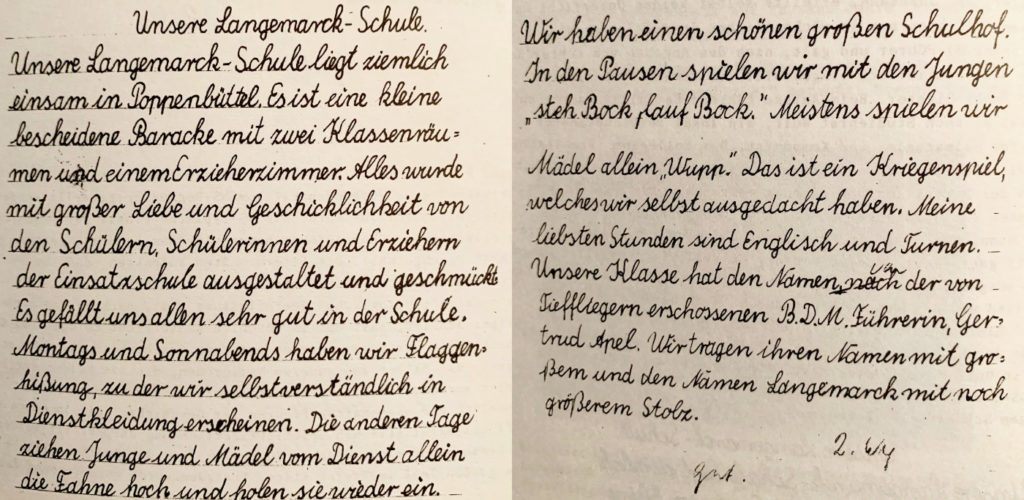 Unsere Langemarck-Schule.
Unsere Langemarck-Schule liegt ziemlich
einsam in Poppenbüttel. Es ist eine kleine
bescheidene Baracke mit zwei Klassenräu=
men und einem Erzieherzimmer. Alles wurde
mit großer Liebe und Geschicklichkeit von
den Schülern, Schülerinnen und Erziehern
der Einsatzschule ausgestaltet und geschmückt
Es gefällt uns allen sehr gut in der Schule.
Montags und Sonnabends haben wir Flaggen=
hißung, zu der wir selbstverständlich in
Dienstkleidung erscheinen. Die anderen Tage
ziehen Junge und Mädel vom Dienst allein
die Fahne hoch und holen sie wieder ein.
Wir haben einen schönen großen Schulhof.
In den Pausen spielen wir mit den Jungen
„steh Bock, lauf Bock." Meistens spielen wir
Mädel allein „Wupp". Das ist ein Kriegenspiel,
welches wir selbst ausgedacht haben. Meine
liebsten Stunden sind Englisch und Turnen.
Unsere Klasse hat den Namen, der von
Tieffliegern erschossenen B.D.M. Führerin, Ger=
trud Apel. Wir tragen ihren Namen mit gro=
ßem und den Namen Langemarck mit noch
größerem Stolz.
gut.